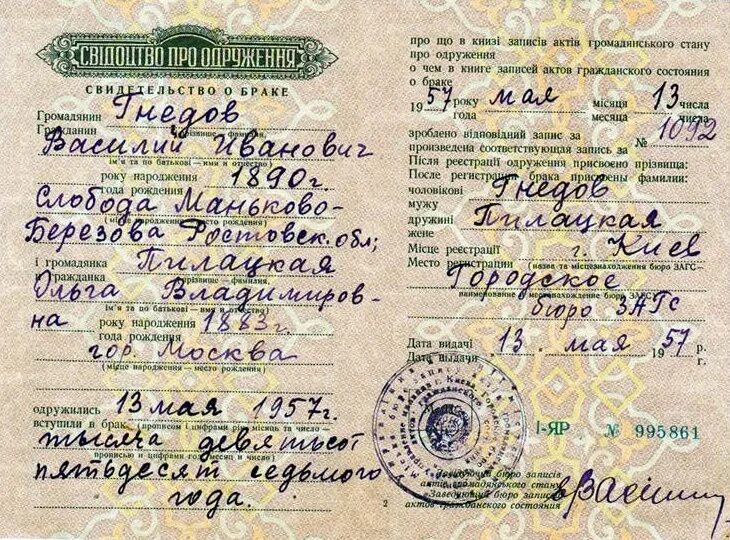 СВІДОЦТВО ПРО ОДРУЖЕННЯ
СВИДЕТЕЛЬСТВО О БРАКЕ
Громадянин Гнедов
Гражданин
прізвище — фамилия,
Василий Иванович
ім'я та по батькові — имя и отчество)
року народження 1890 г.
года рождения
Слобода Маньково-
(місце народження — место рождения)
Березова Ростовск. обл;
і громадянка Пилацкая
и гражданка
прізвище — фамилия,
Ольга Владимиров-
ім'я та по батькові — имя и отчество)
на року народження 1883 г.
года рождения
гор. Москва
(місце народження — место рождения)
одружились 13 мая 1957 г.
вступили в брак (прописом і цифрами рік, місяць та число —
тысяча девятьсот
прописью и цифрами год, месяц и число)
пятьдесят седьмого
года.
про що в книзі записів актів громадянського стану
про одруження
о чем в книге записей актов гражданского состояния
о браке
1957 року мая місяця 13 числа
года месяца числа
зроблено відповідний запис за № 1092
произведена соответствующая запись за
Після реєстрації одруження присвоєно прізвища:
После регистрации брака присвоены фамилии:
чоловікові Гнедов
мужу
дружині Пилацкая
жене
Місце реєстрації г. Киев
Место регистрации (назва та місцезнаходження бюро ЗАГС—
Городское
наименование и местонахождение бюро ЗАГС)
бюро ЗАГС
Дата видачі 13 мая 1957 р.
Дата выдачи г.
І-ЯР № 995861
Завідуючий бюро записів
актів громадянського стану
Заведующий бюро записей
актов гражданского состояния
2